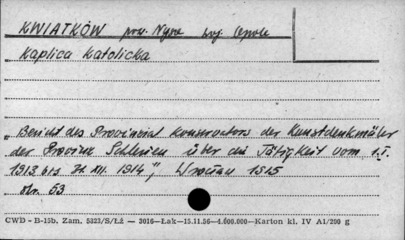 KWIATKÓW pow. Nysa woj. Opole
Kaplica katolicka
"Bericht des Provinzial Konservators der Kunstdenkmäler
der Provinz Schlesien über die Tätigkeit vom 1.I.
1913 bis 31.XII. 1914", Wrocław 1915
str. 53
CWD - B-15b, Zam. 5323/S/Łż — 3016—Łak—15.11.56—4.000.000—Karton kl. IV A1/200 g